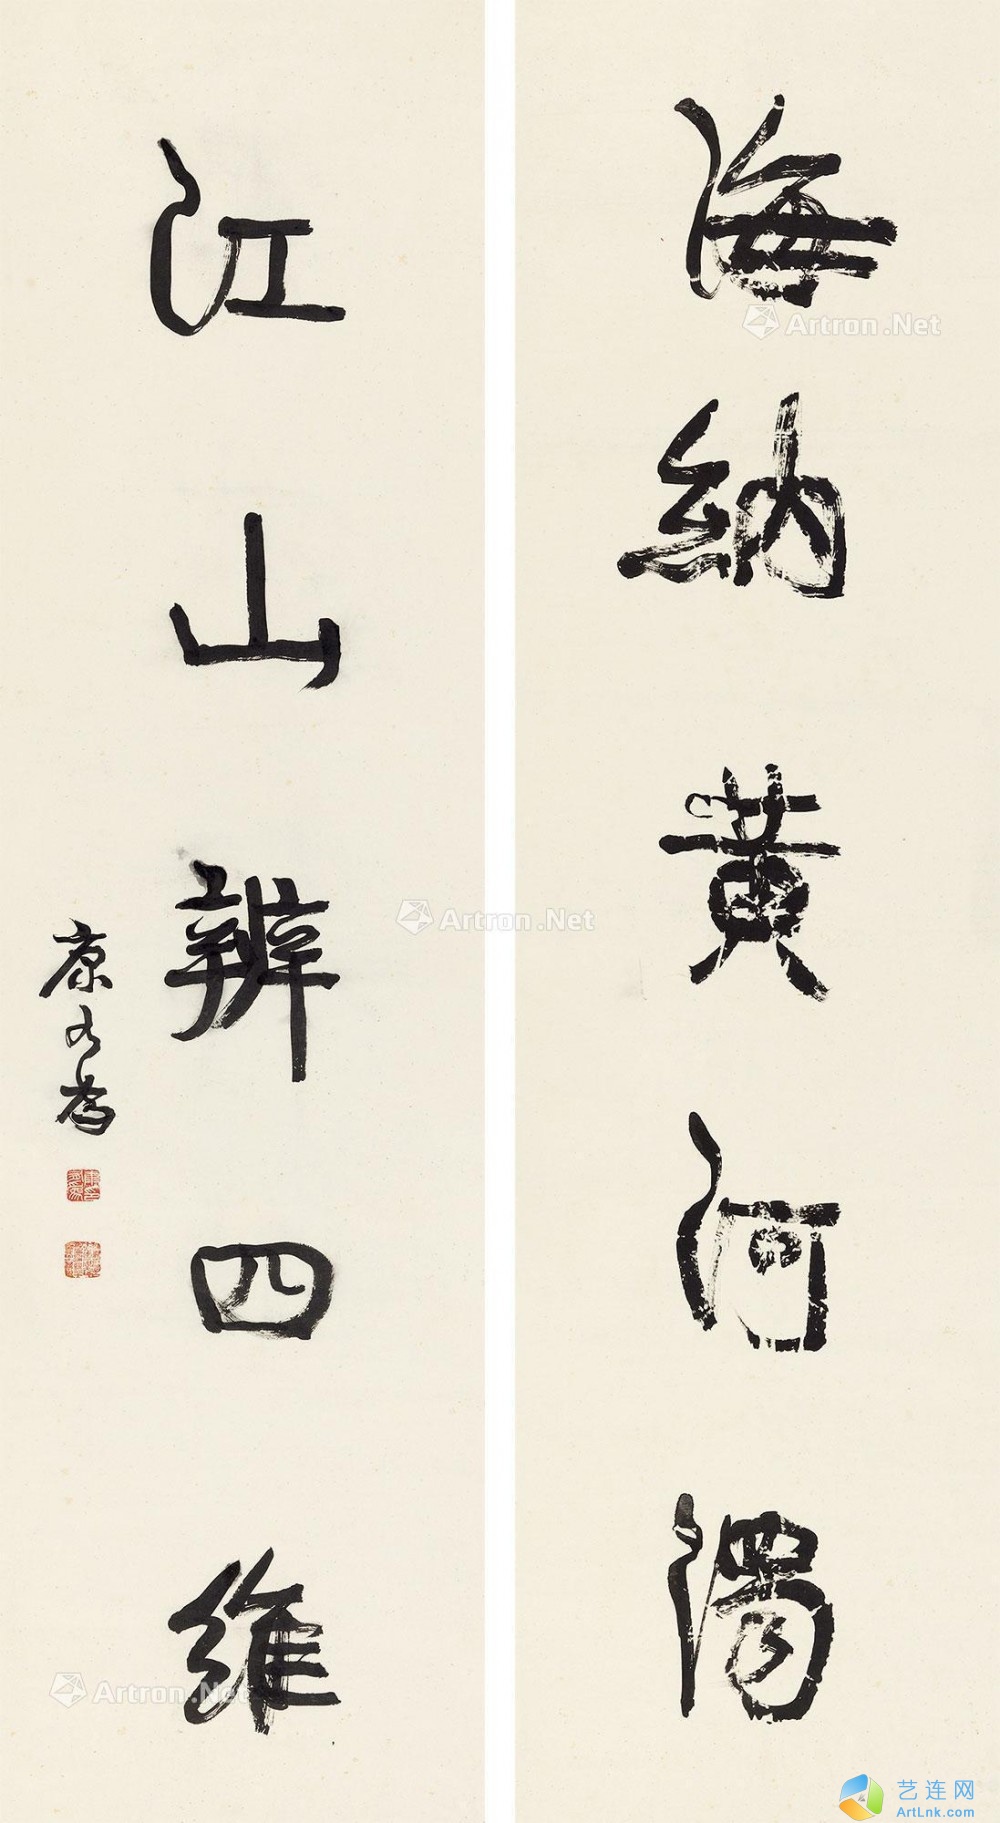 海納黄河濁
江山辨四維
康有為
Artron.Net
Artron.Net
Artron.Net
艺连网
ArtLnk.com